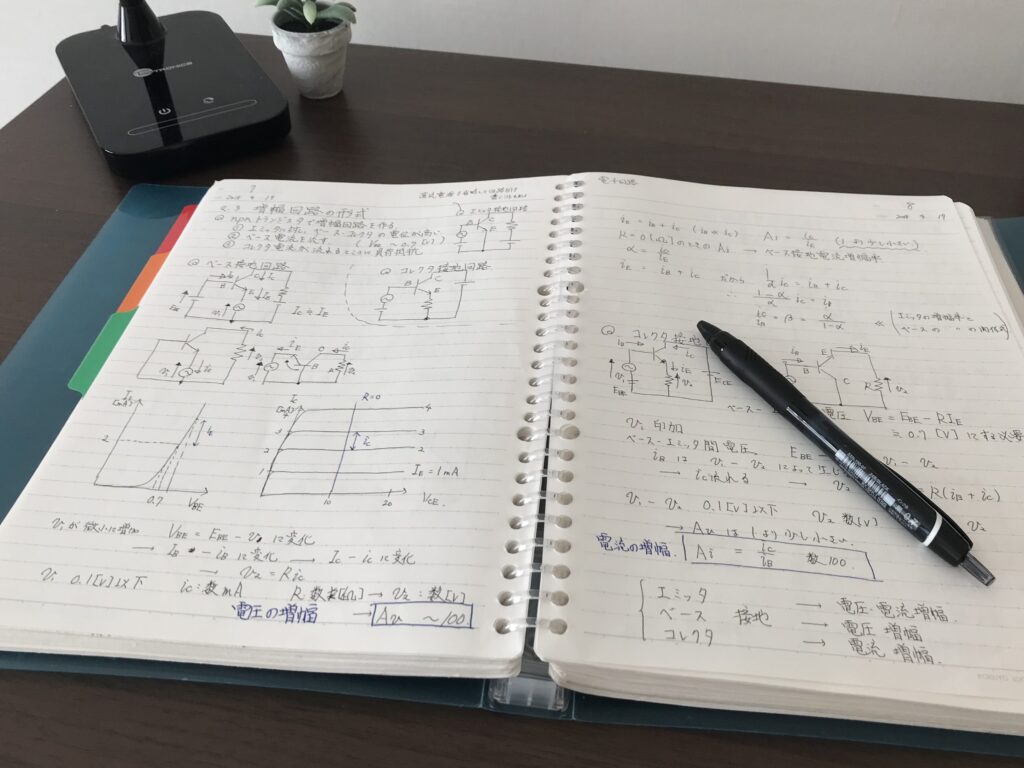 TROTRONICS
7
2.3 増幅回路の形式
◎ npn トランジスタで増幅回路を作る
① エミッタに対し、ベース・コレクタの電位が高い
② ベース電流を流す (VBE ~ 0.7 [V])
③ コレクタ電流が流れるところに負荷抵抗
◎ エミッタ接地回路
B C E
◎ ベース接地回路
◎ コレクタ接地回路
B C E
IC ≒ IE
IC [mA]
2
0.7
VBE
IC [mA]
R=0
4
3
2
1
IE = 1mA
10
20
VCE
v1 が微小に増加 VBE = EBE - v1 に変化
→ IB - iB に変化 → IC - iC に変化
→ v2 = R iC
v1 0.1[V]以下 iC : 数mA → v2 : 数[V]
電圧の増幅 → Av ~100
電子回路
8
iE = iB + iC
Ai = iC/iE (1より少し小さい)
R = 0 [Ω] のときの Ai → ベース接地電流増幅率
α = iC/iE
iE = iB + iC だから 1/α iC = iB + iC
∴ (1-α)/α iC = iB
iC/iB = β = α/(1-α)
エミッタの増幅率と
ベースの 〃 の関係式
◎ コレクタ接地
EBE
ECE
B E C R v2
電圧 VBE = EBE - RIE
≒ 0.7 [V] にする必要
v1 印加
ベース-エミッタ間電圧 EBE
iB は v1 - v2 によって
→ iC 流れる → v2 = R(iB + iC)
v1 - v2 0.1[V]以下 v2 数[V]
→ Av は 1 より少し小さい
電流の増幅 Ai = iC/iB 数100
エミッタ → 電圧・電流増幅
ベース 接地 → 電圧 増幅
コレクタ → 電流 増幅